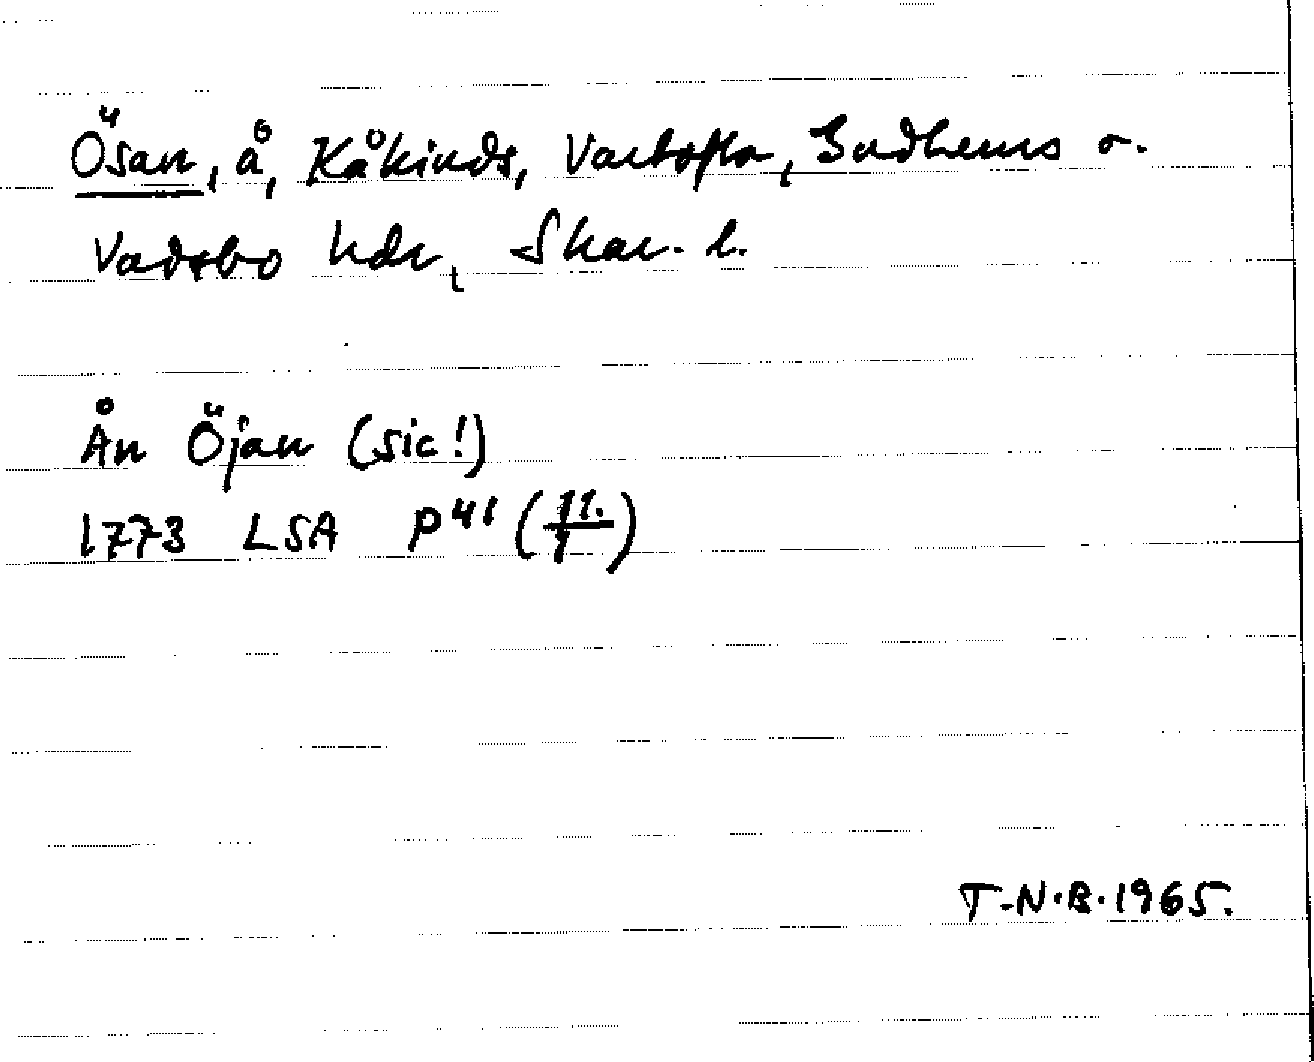 Ösan, å, Kåkinds, Vartofta, Gudhems o.
Vadsbo hdr, Skar. l.
Ån Öjan (sic!)
1773 LSA P 41 (11./1)
T-N.B. 1965.